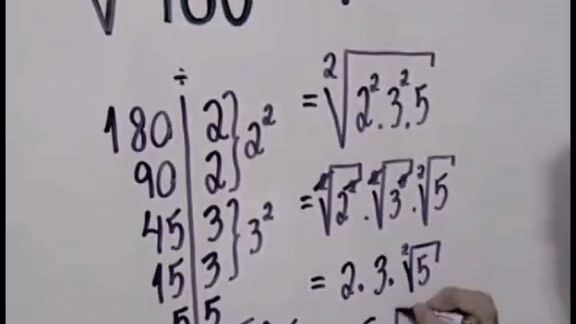 √180
÷
180 | 2 } 2²
90 | 2
45 | 3 } 3²
15 | 3
5 | 5
= ²√2².3².5
= ²√2² . ²√3² . ²√5
= 2 . 3 . ²√5